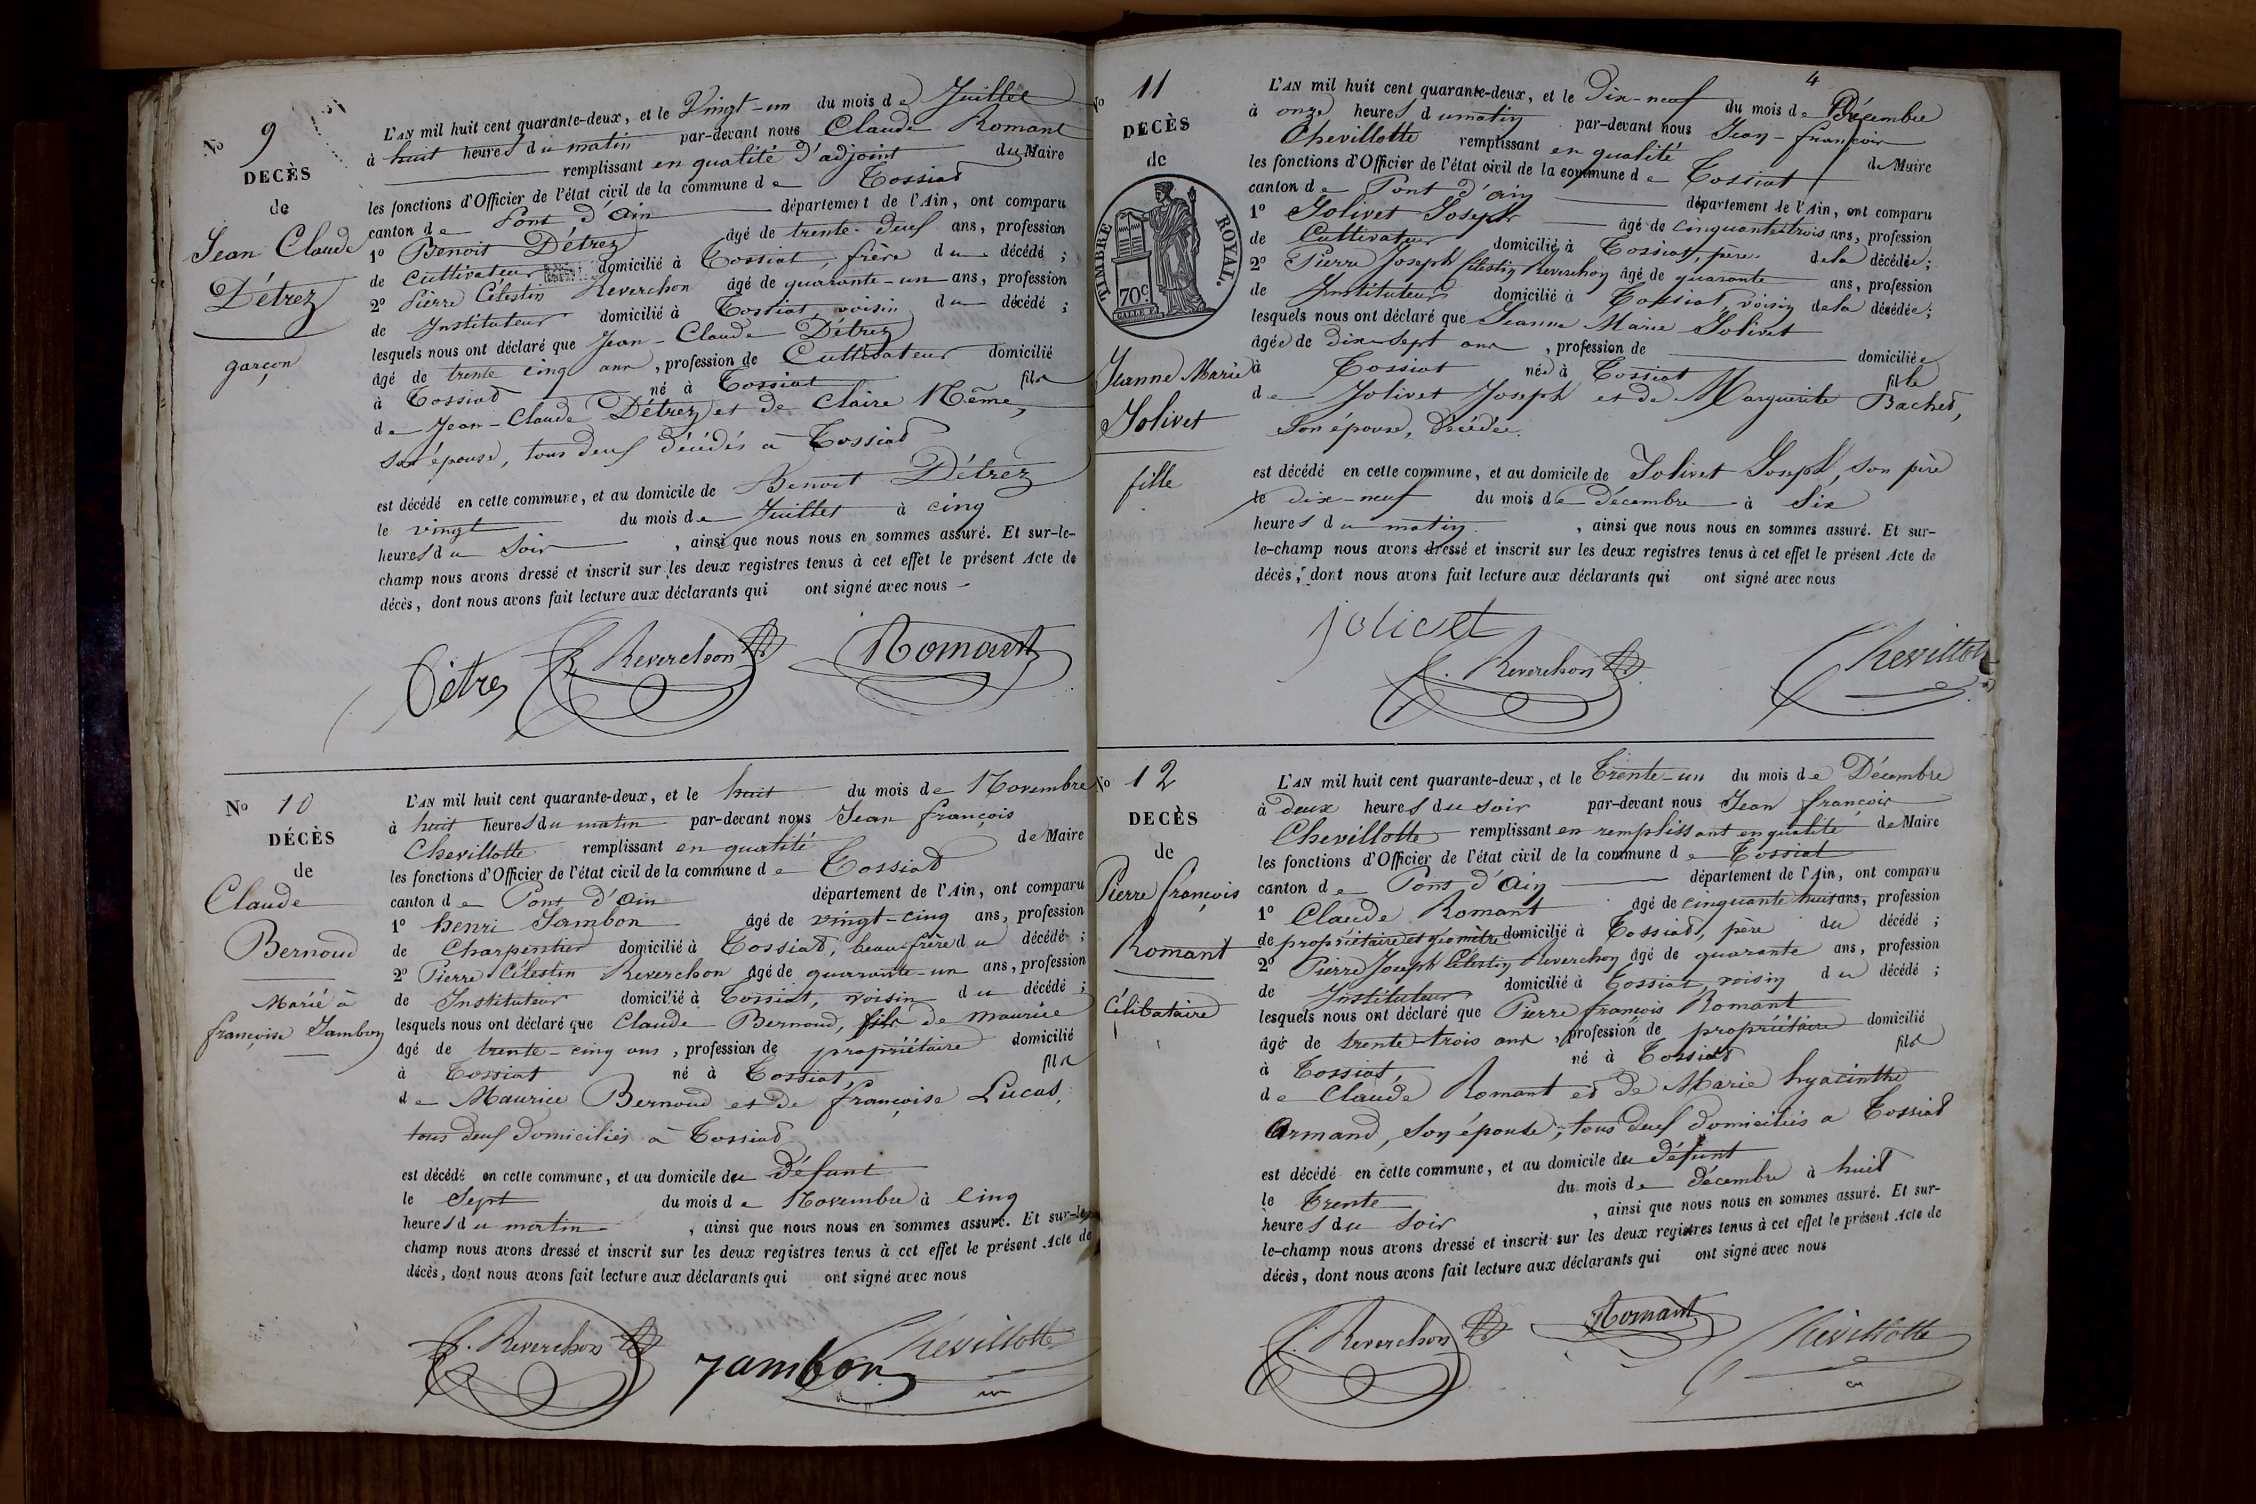 No 9
DECÈS
de
Jean Claude
Détrez
garçon
L'AN mil huit cent quarante-deux, et le Vingt-un du mois de Juillet
à huit heures du matin par-devant nous Claude Romant
remplissant en qualité d'adjoint du Maire
les fonctions d'Officier de l'état civil de la commune de Tossiat
canton de Pont d'Ain département de l'Ain, ont comparu
1° Benoit Détrez âgé de trente-deux ans, profession
de Cultivateur domicilié à Tossiat, frère du décédé ;
2° Pierre Célestin Reverchon âgé de quarante-un ans, profession
de Instituteur domicilié à Tossiat, voisin du décédé ;
lesquels nous ont déclaré que Jean-Claude Détrez
âgé de trente cinq ans, profession de Cultivateur domicilié
à Tossiat né à Tossiat fils
de Jean-Claude Détrez et de Claire Même,
son épouse, tous deux décédés à Tossiat
est décédé en cette commune, et au domicile de Benoit Détrez
le vingt du mois de Juillet à cinq
heures du soir, ainsi que nous nous en sommes assuré. Et sur-le-
champ nous avons dressé et inscrit sur les deux registres tenus à cet effet le présent Acte de
décès, dont nous avons fait lecture aux déclarants qui ont signé avec nous
Détrez Reverchon Romant
No 10
DÉCÈS
de
Claude
Bernoud
Marié à
françoise Jambon
L'AN mil huit cent quarante-deux, et le huit du mois de Novembre
à huit heures du matin par-devant nous Jean françois
Chevillotte remplissant en qualité de Maire
les fonctions d'Officier de l'état civil de la commune de Tossiat
canton de Pont d'Ain département de l'Ain, ont comparu
1° henri Jambon âgé de vingt-cinq ans, profession
de Charpentier domicilié à Tossiat, beau frère du décédé ;
2° Pierre Célestin Reverchon âgé de quarante-un ans, profession
de Instituteur domicilié à Tossiat, voisin du décédé ;
lesquels nous ont déclaré que Claude Bernoud, fils de maurice
âgé de trente-cinq ans, profession de propriétaire domicilié
à Tossiat né à Tossiat, fils
de Maurice Bernoud et de françoise Lucas,
tous deux domiciliés à Tossiat
est décédé en cette commune, et au domicile du défunt
le Sept du mois de Novembre à Cinq
heures du matin, ainsi que nous nous en sommes assuré. Et sur-le-
champ nous avons dressé et inscrit sur les deux registres tenus à cet effet le présent Acte de
décès, dont nous avons fait lecture aux déclarants qui ont signé avec nous
Reverchon Jambon Chevillotte
4
No 11
DECÈS
de
TIMBRE ROYAL.
70c
Jeanne Marie
Jolivet
fille
L'AN mil huit cent quarante-deux, et le Dix-neuf du mois de Décembre
à onze heures du matin par-devant nous Jean-françois
Chevillotte remplissant en qualité de Maire
les fonctions d'Officier de l'état civil de la commune de Tossiat
canton de Pont d'ain département de l'Ain, ont comparu
1° Jolivet Joseph âgé de cinquante trois ans, profession
de Cultivateur domicilié à Tossiat, père de la décédée ;
2° Pierre Joseph Célestin Reverchon âgé de quarante ans, profession
de Instituteur domicilié à Tossiat, voisin de la décédée ;
lesquels nous ont déclaré que Jeanne Marie Jolivet
âgée de dix-sept ans, profession de domiciliée
à Tossiat née à Tossiat fille
de Jolivet Joseph et de Marguerite Bachet,
son épouse, Décédée.
est décédé en cette commune, et au domicile de Jolivet Joseph, son père
le dix-neuf du mois de Décembre à Six
heures du matin, ainsi que nous nous en sommes assuré. Et sur-
le-champ nous avons dressé et inscrit sur les deux registres tenus à cet effet le présent Acte de
décès, dont nous avons fait lecture aux déclarants qui ont signé avec nous
jolivet Reverchon Chevillotte
No 12
DECÈS
de
Pierre françois
Romant
Célibataire
L'AN mil huit cent quarante-deux, et le Trente-un du mois de Décembre
à deux heures du soir par-devant nous Jean françois
Chevillotte remplissant en remplissant en qualité de Maire
les fonctions d'Officier de l'état civil de la commune de Tossiat
canton de Pont d'Ain département de l'Ain, ont comparu
1° Claude Romant âgé de cinquante huit ans, profession
de propriétaire et géomètre domicilié à Tossiat, père du décédé ;
2° Pierre Joseph Célestin Reverchon âgé de quarante ans, profession
de Instituteur domicilié à Tossiat, voisin du décédé ;
lesquels nous ont déclaré que Pierre françois Romant
âgé de trente-trois ans, profession de propriétaire domicilié
à Tossiat, né à Tossiat fils
de Claude Romant et de Marie hyacinthe
Armand, son épouse, tous deux domiciliés à Tossiat
est décédé en cette commune, et au domicile du défunt
le Trente du mois de décembre à huit
heures du soir, ainsi que nous nous en sommes assuré. Et sur-
le-champ nous avons dressé et inscrit sur les deux registres tenus à cet effet le présent Acte de
décès, dont nous avons fait lecture aux déclarants qui ont signé avec nous
Reverchon Romant Chevillotte